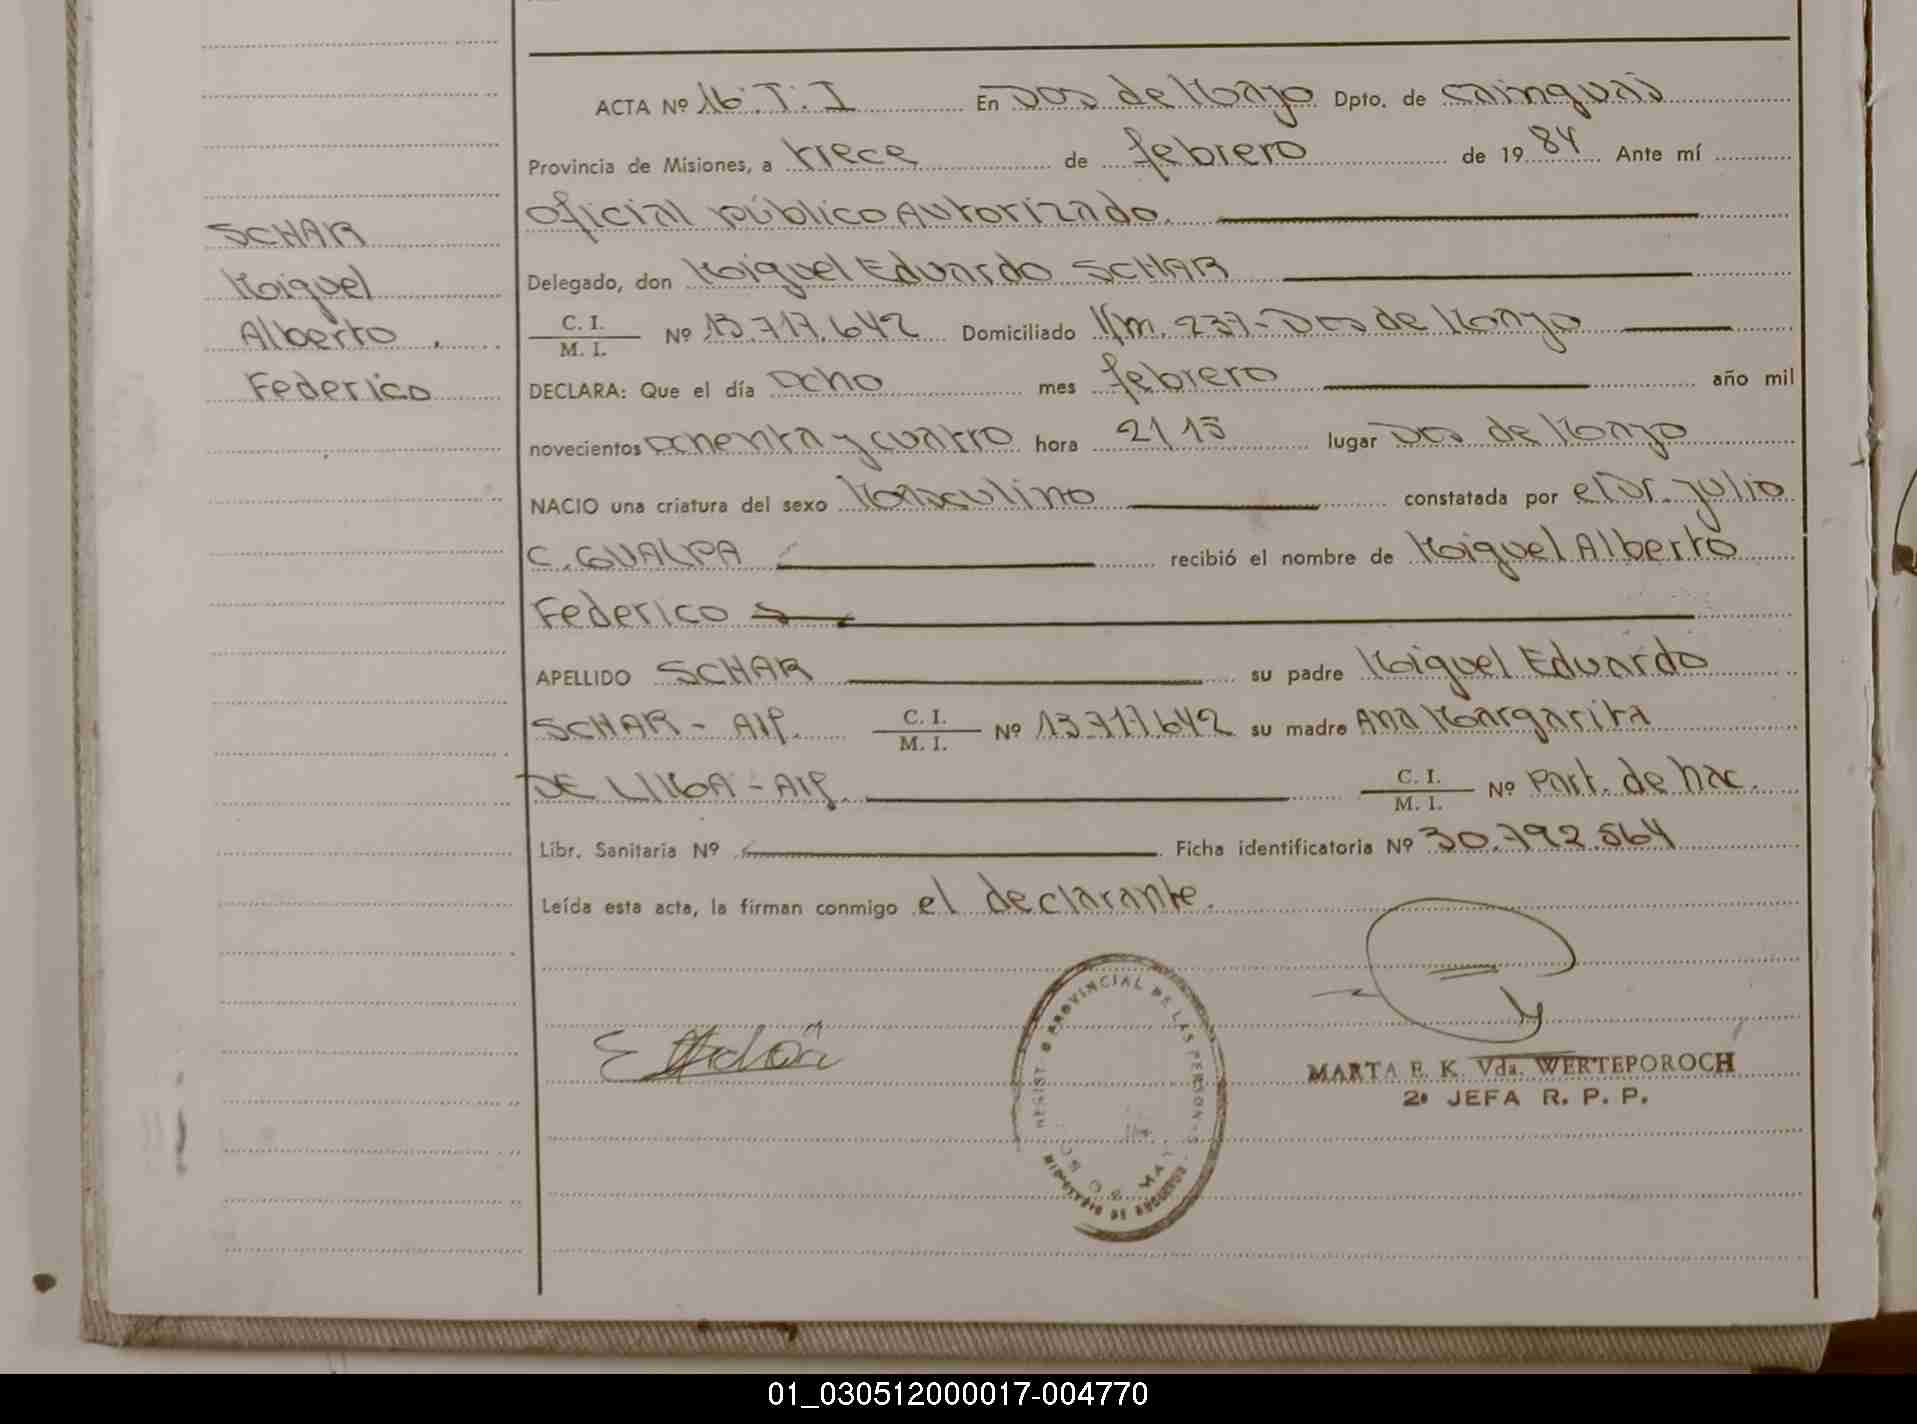 SCHAR
Miguel
Alberto
Federico
ACTA Nº 16. T. I En Dos de Mayo Dpto. de Cainguás
Provincia de Misiones, a trece de febrero de 1984 Ante mí
oficial público Autorizado.
Delegado, don Miguel Eduardo SCHAR
C. I. / M. I. Nº 13.717.642 Domiciliado Km. 237-Dos de Mayo
DECLARA: Que el día ocho mes febrero año mil
novecientos ochenta y cuatro hora 21 15 lugar Dos de Mayo
NACIO una criatura del sexo Masculino constatada por el Dr. Julio
C. GUALPA recibió el nombre de Miguel Alberto
Federico
APELLIDO SCHAR su padre Miguel Eduardo
SCHAR - Arg. C. I. / M. I. Nº 13.717.642 su madre Ana Margarita
DE LIMA - Arg. C. I. / M. I. Nº Part. de nac.
Libr. Sanitaria Nº Ficha identificatoria Nº 30.792.564
Leída esta acta, la firman conmigo el declarante.
PROVINCIAL DE LAS PERSONAS
MARTA E. K. Vda. WERTEPOROCH
2ª JEFA R. P. P.
01_030512000017-004770